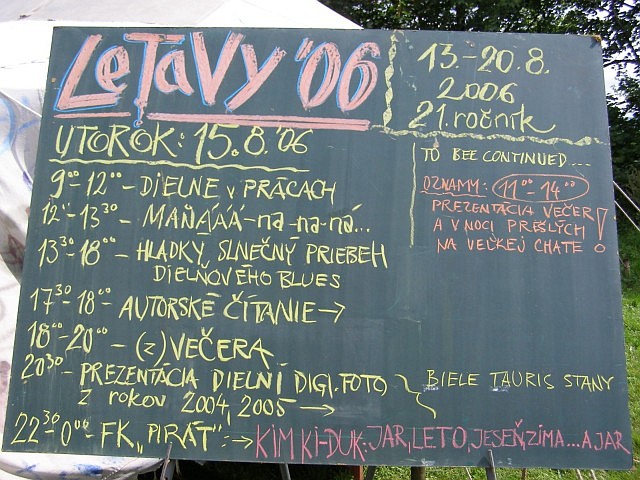 LeTaVy '06
13.-20.8.
2006
21. ročník
UTOROK: 15.8.'06
9⁰⁰-12⁰⁰- DIELNE V PRÁCACH
12⁰⁰-13³⁰- MAŇÁÁÁ-na-na-ná...
13³⁰-18⁰⁰- HLADKÝ, SLNEČNÝ PRIEBEH
DIELŇOVÉHO BLUES
17³⁰-18⁰⁰- AUTORSKÉ ČÍTANIE →
18⁰⁰-20⁰⁰- (z) VEČERA
20³⁰- PREZENTÁCIA DIELNÍ DIGI.FOTO
Z rokov 2004, 2005 →
BIELE TAURIS STANY
22³⁰-0⁰⁰- FK „PIRÁT“: → KIM KI-DUK: JAR, LETO, JESEŇ, ZIMA... A JAR
TO BEE CONTINUED...
OZNAMY: 11⁰⁰-14⁰⁰
PREZENTÁCIA VEČER
A V NOCI PREŠLÝCH
NA VEĽKEJ CHATE!